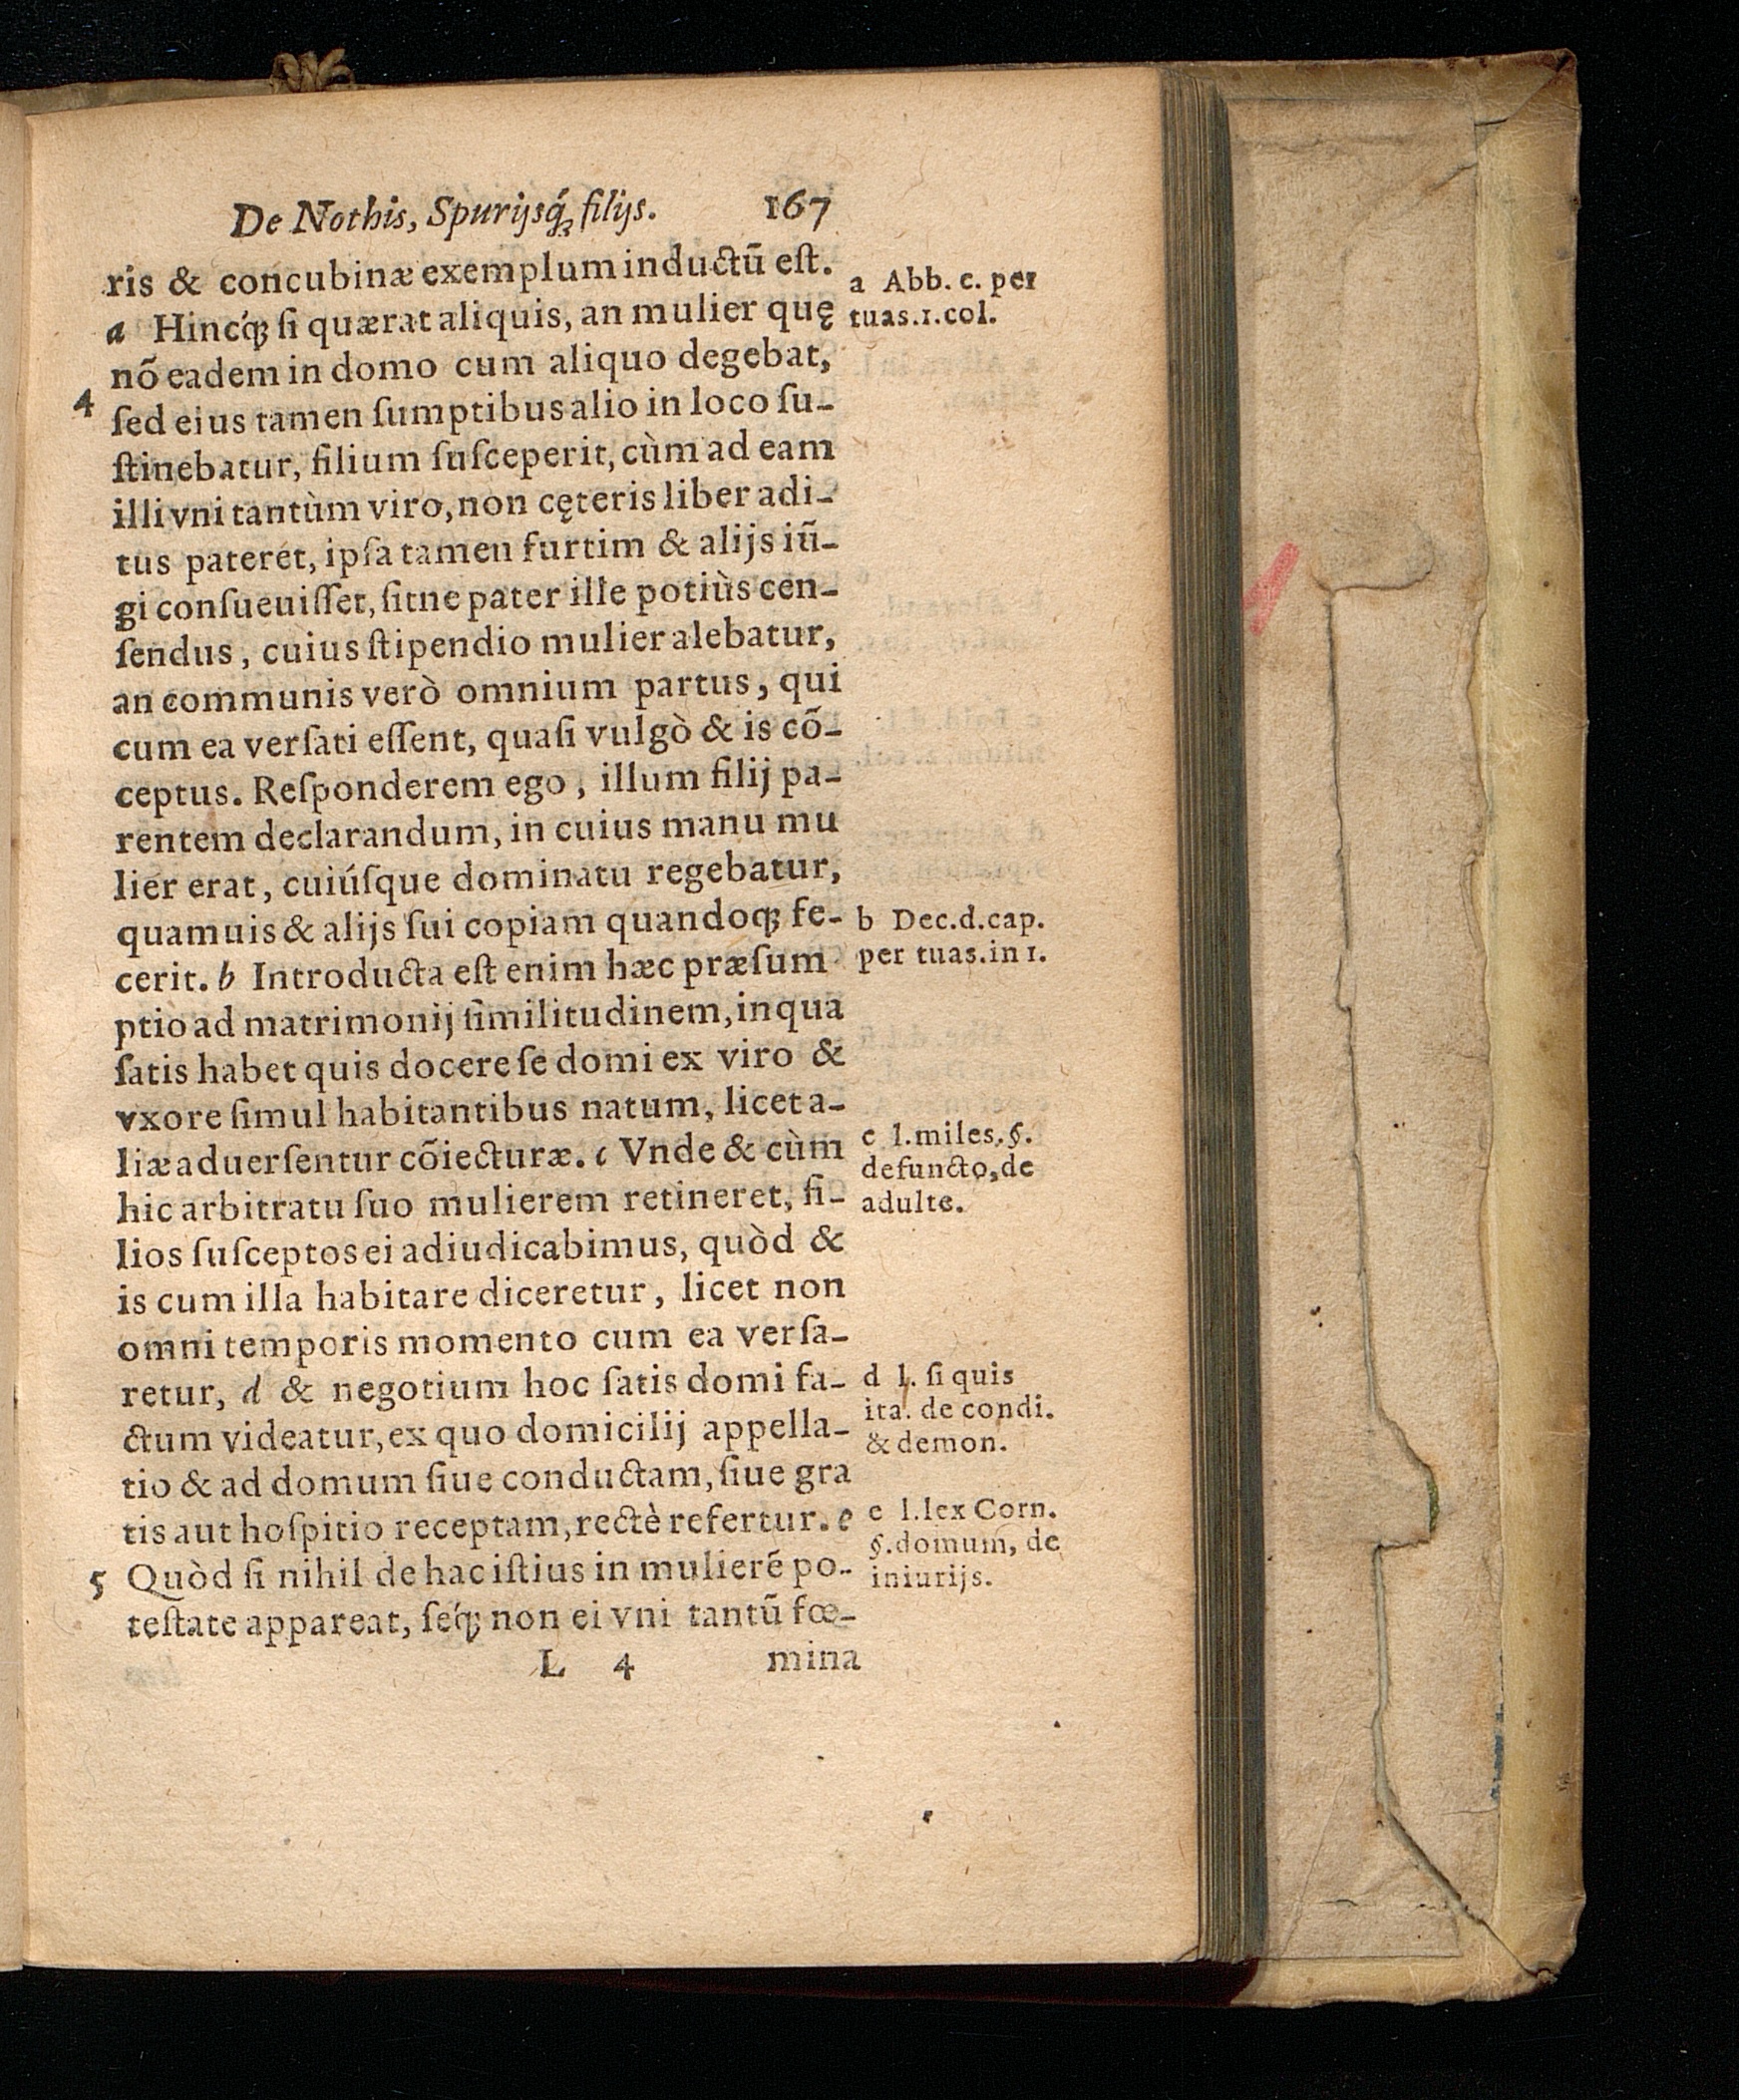 De Nothis, Spurijsq́; filijs. 167
ris & concubinæ exemplum inductũ eſt.
a Hincq́; ſi quærat aliquis, an mulier quę
nõ eadem in domo cum aliquo degebat,
4 ſed eius tamen ſumptibus alio in loco ſu-
ſtinebatur, filium ſuſceperit, cùm ad eam
illi vni tantùm viro, non cęteris liber adi-
tus pateret, ipſa tamen furtim & alijs iũ-
gi conſueuiſſet, ſitne pater ille potiùs cen-
ſendus, cuius ſtipendio mulier alebatur,
an communis verò omnium partus, qui
cum ea verſati eſſent, quaſi vulgò & is cõ-
ceptus. Reſponderem ego, illum filij pa-
rentem declarandum, in cuius manu mu
lier erat, cuiúſque dominatu regebatur,
quamuis & alijs ſui copiam quandoq; fe-
cerit. b Introducta eſt enim hæc præſum
ptio ad matrimonij ſimilitudinem, in qua
ſatis habet quis docere ſe domi ex viro &
vxore ſimul habitantibus natum, licet a-
liæ aduerſentur cõiecturæ. c Vnde & cùm
hic arbitratu ſuo mulierem retineret, fi-
lios ſuſceptos ei adiudicabimus, quòd &
is cum illa habitare diceretur, licet non
omni temporis momento cum ea verſa-
retur, d & negotium hoc ſatis domi fa-
ctum videatur, ex quo domicilij appella-
tio & ad domum ſiue conductam, ſiue gra
tis aut hoſpitio receptam, rectè refertur. e
5 Quòd ſi nihil de hac iſtius in mulierẽ po-
teſtate appareat, ſeq́; non ei vni tantũ fœ-
L 4 mina
a Abb. c. per
tuas.1.col.
b Dec.d.cap.
per tuas.in 1.
c l.miles.§.
defuncto, de
adulte.
d l. ſi quis
ita. de condi.
& demon.
e l.lex Corn.
§.domum, de
iniurijs.